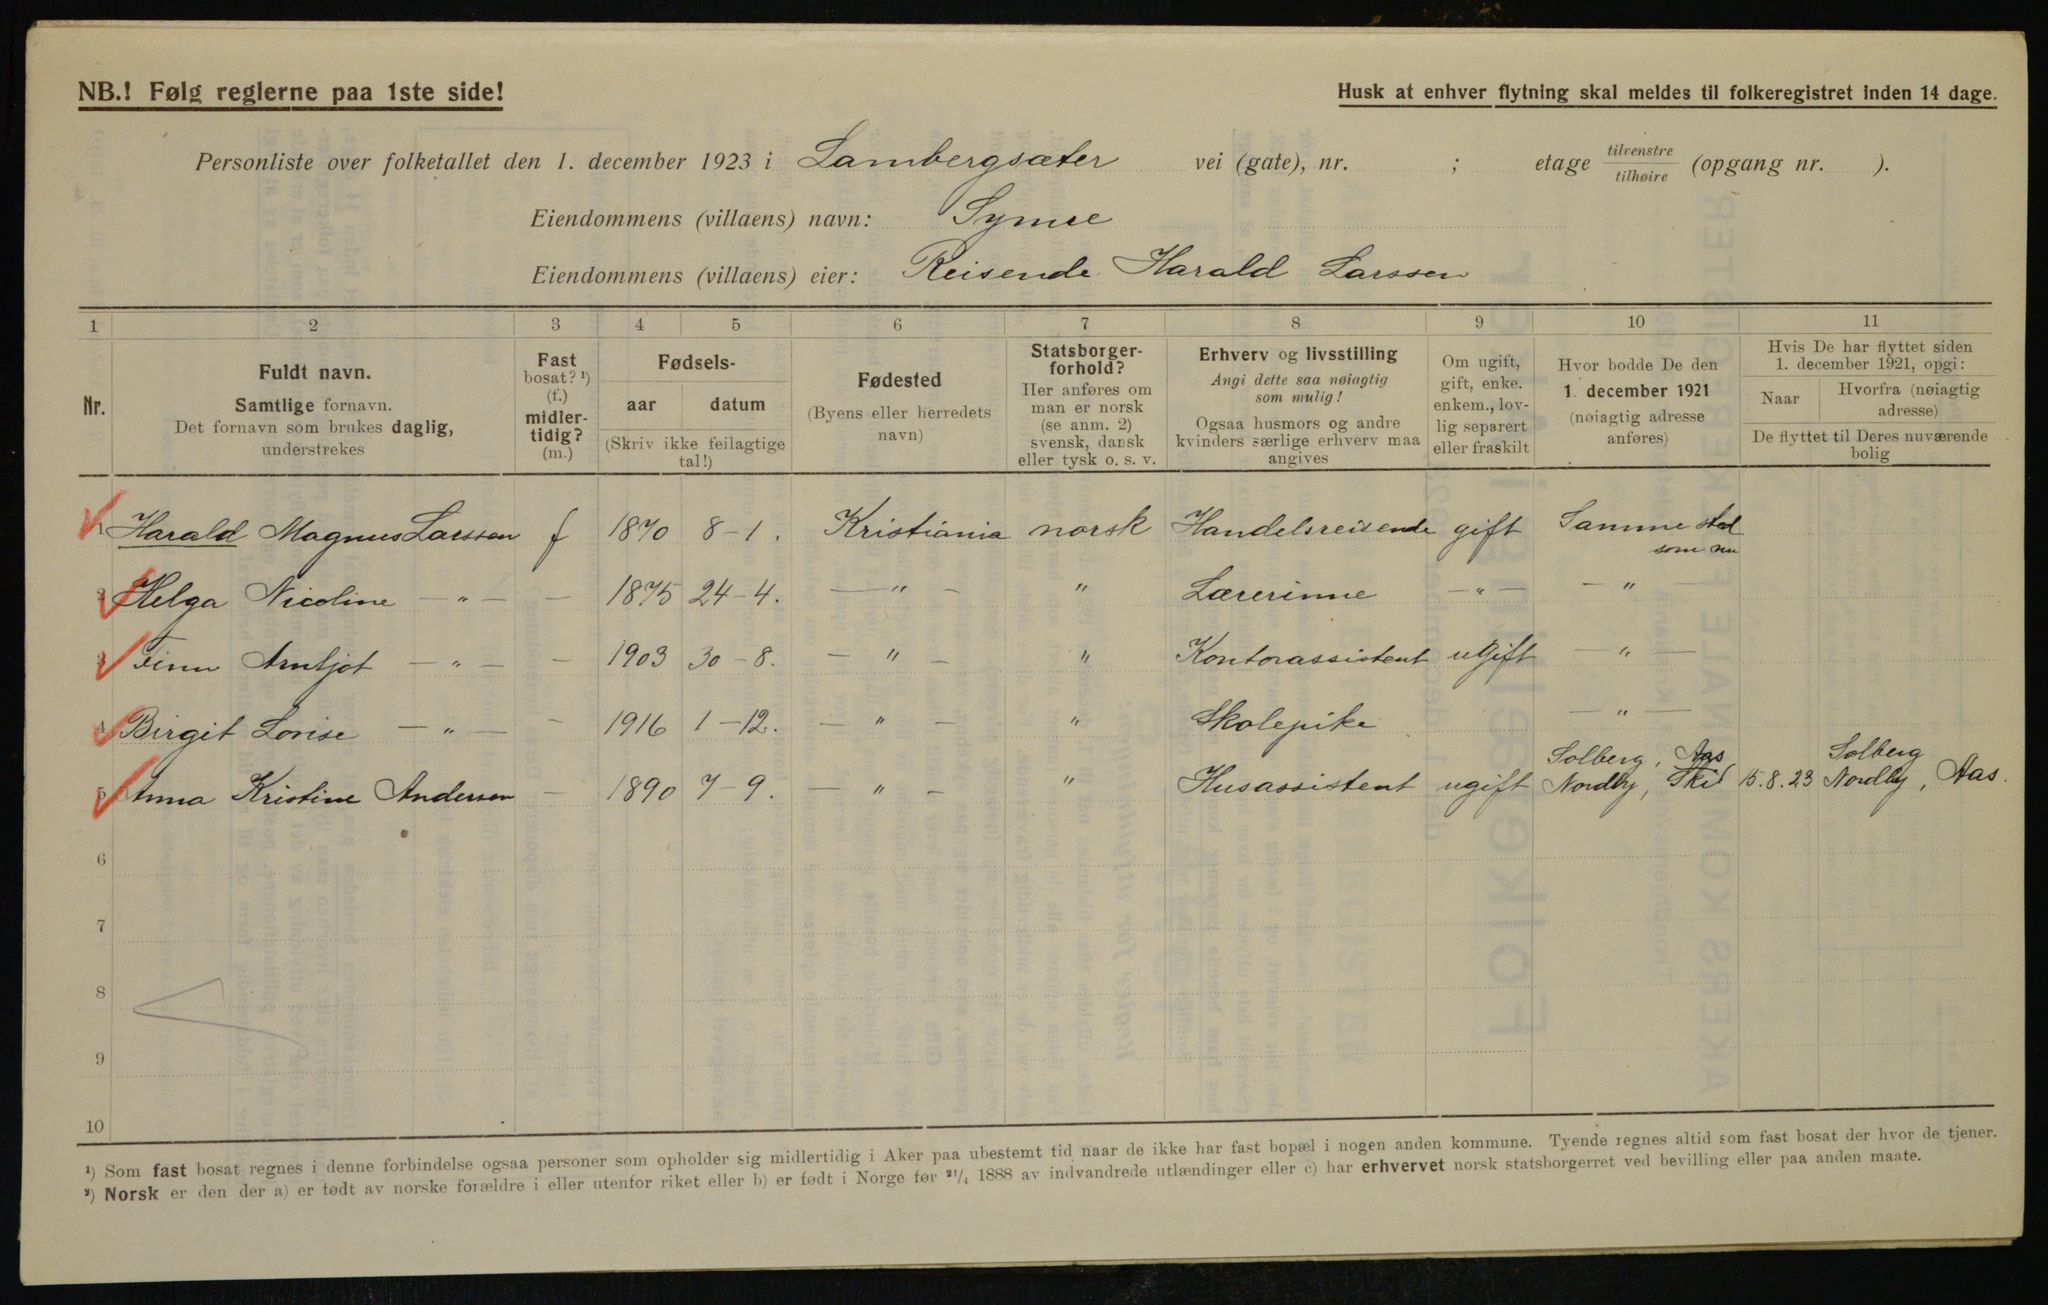 NB.! Følg reglerne paa 1ste side!
Husk at enhver flytning skal meldes til folkeregistret inden 14 dage.
Personliste over folketallet den 1. december 1923 i Lambergsæter vei (gate), nr. ; etage tilvenstre tilhøire (opgang nr. ).
Eiendommens (villaens) navn: Symre
Eiendommens (villaens) eier: Reisende Harald Larssen
1 2 3 4 5 6 7 8 9 10 11
Nr.
Fuldt navn.
Samtlige fornavn.
Det fornavn som brukes daglig,
understrekes
Fast
bosat? ¹)
(f.)
midler-
tidig?
(m.)
Fødsels-
aar datum
(Skriv ikke feilagtige
tal!)
Fødested
(Byens eller herredets
navn)
Statsborger-
forhold?
Her anføres om
man er norsk
(se anm. 2)
svensk, dansk
eller tysk o. s. v.
Erhverv og livsstilling
Angi dette saa nøiagtig
som mulig!
Ogsaa husmors og andre
kvinders særlige erhverv maa
angives
Om ugift,
gift, enke.
enkem., lov-
lig separert
eller fraskilt
Hvor bodde De den
1. december 1921
(nøiagtig adresse
anføres)
Hvis De har flyttet siden
1. december 1921, opgi:
Naar
Hvorfra (nøiagtig
adresse)
De flyttet til Deres nuværende
bolig
1 Harald Magnus Larssen f 1870 8-1. Kristiania norsk Handelsreisende gift Samme sted
som nu
2 Helga Nicoline — " — — 1875 24-4. — " — " Lærerinne — " — — " —
3 Finn Arntjot — " — — 1903 30-8. — " — " Kontorassistent ugift — " —
4 Birgit Lovise — " — — 1916 1-12. — " — " Skolepike — " —
5 Anna Kristine Andersen — 1890 7-9. — " — " Husassistent ugift Solberg, Aas
Nordby, Ski 15.8.23 Solberg
Nordby, Aas.
6
7
8
9
10
¹) Som fast bosat regnes i denne forbindelse ogsaa personer som opholder sig midlertidig i Aker paa ubestemt tid naar de ikke har fast bopæl i nogen anden kommune. Tyende regnes altid som fast bosat der hvor de tjener.
²) Norsk er den der a) er født av norske forældre i eller utenfor riket eller b) er født i Norge før ²¹/₄ 1888 av indvandrede utlændinger eller c) har erhvervet norsk statsborgerret ved bevilling eller paa anden maate.